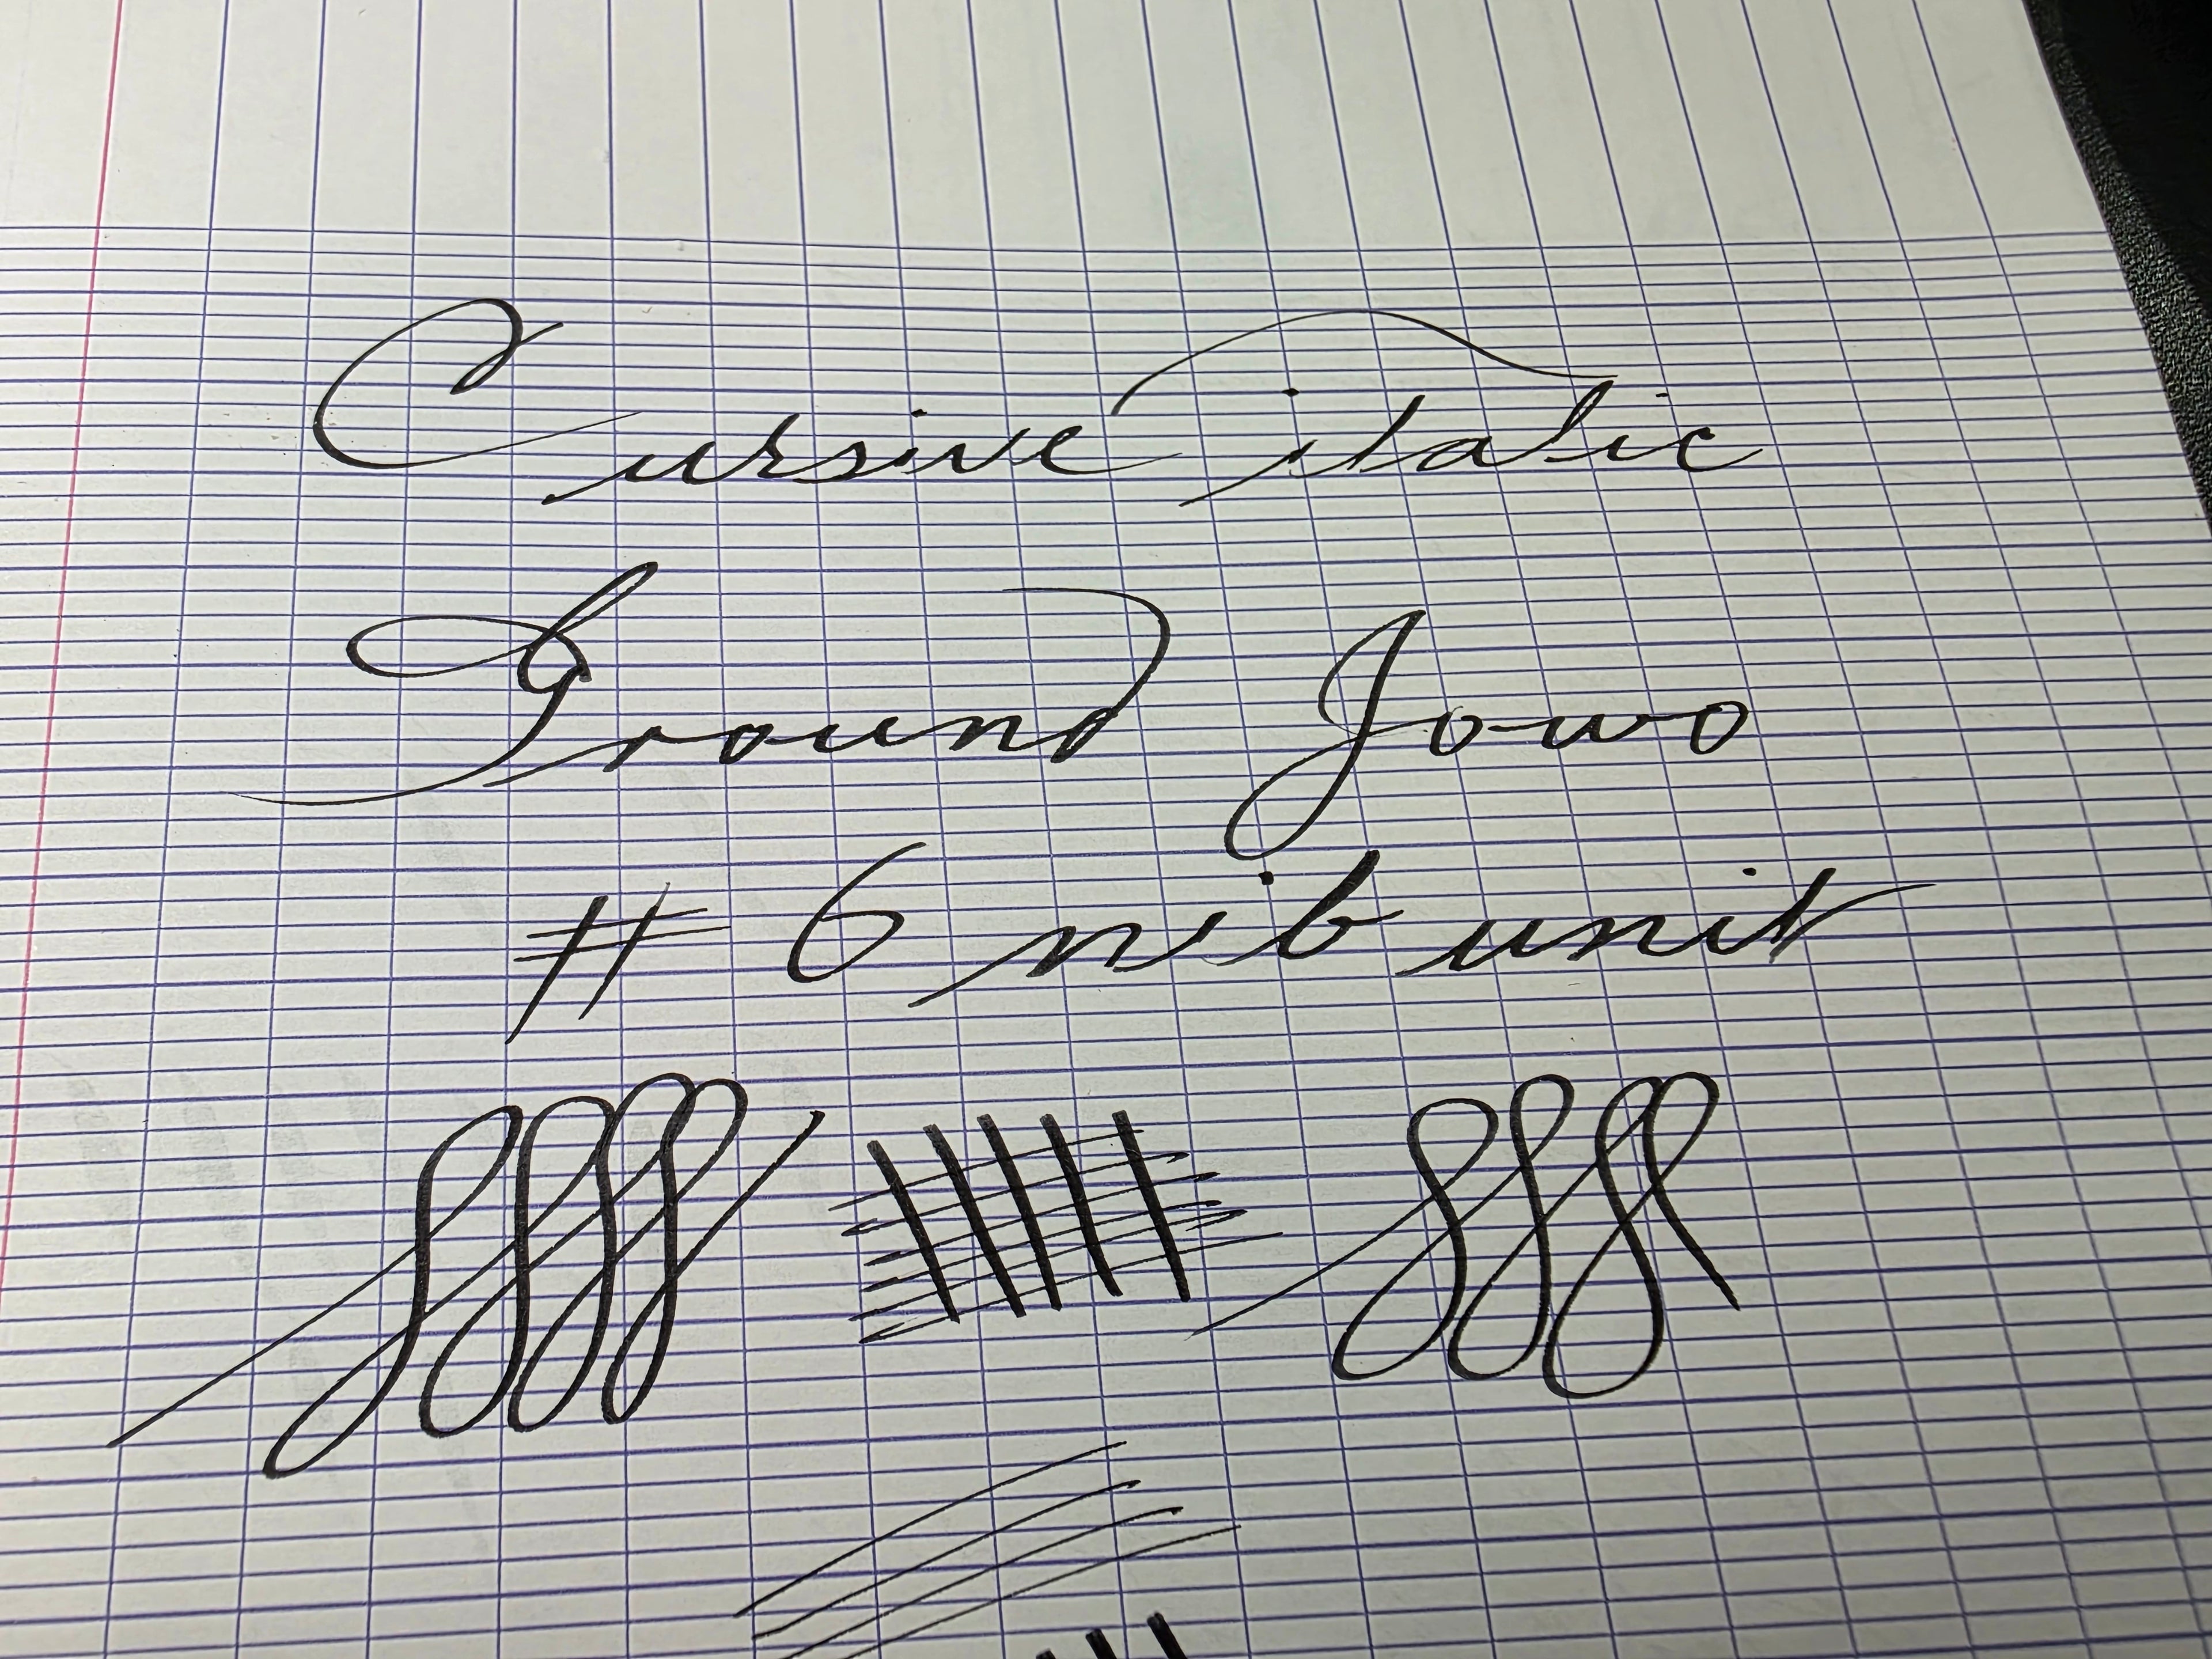 Cursive italic
Ground Jowo
# 6 nib unit